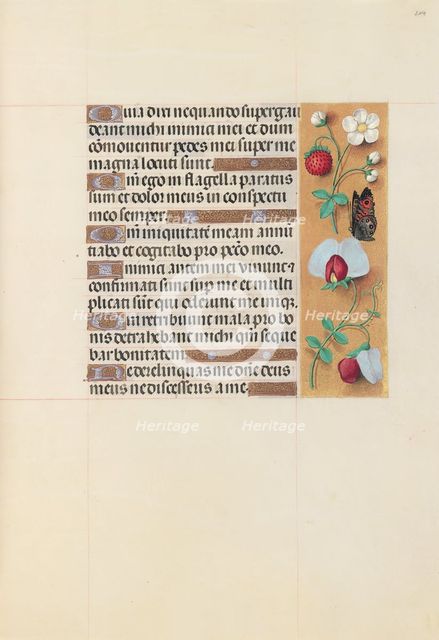 Quia dixi nequando supergau
deant michi inimici mei et dum
comoventur pedes mei super me
magna locuti sunt.
Qm̄ ego in flagella paratus
sum et dolor meus in conspectu
meo semper.
Qm̄ iniquitatē meam annū
tiabo et cogitabo pro pctō meo.
Inimici autem mei vivunt et
confirmati sunt sup me et multi
plicati sūt qui oderunt me iniq.
Qui retribuunt mala pro bo
nis detrahebant michi qm̄ seque
bar bonitatem.
Ne derelinquas me dn̄e deus
meus ne discesseris a me.
Heritage Heritage
Heritage Heritage